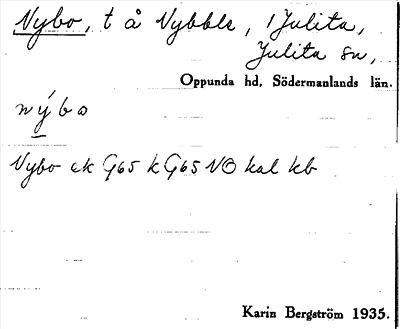 Nybo, t å Nybble, i Julita,
Julita sn,
Oppunda hd, Södermanlands län.
nýbo
Nybo ek G65 k G65 NO kal kb
Karin Bergström 1935.